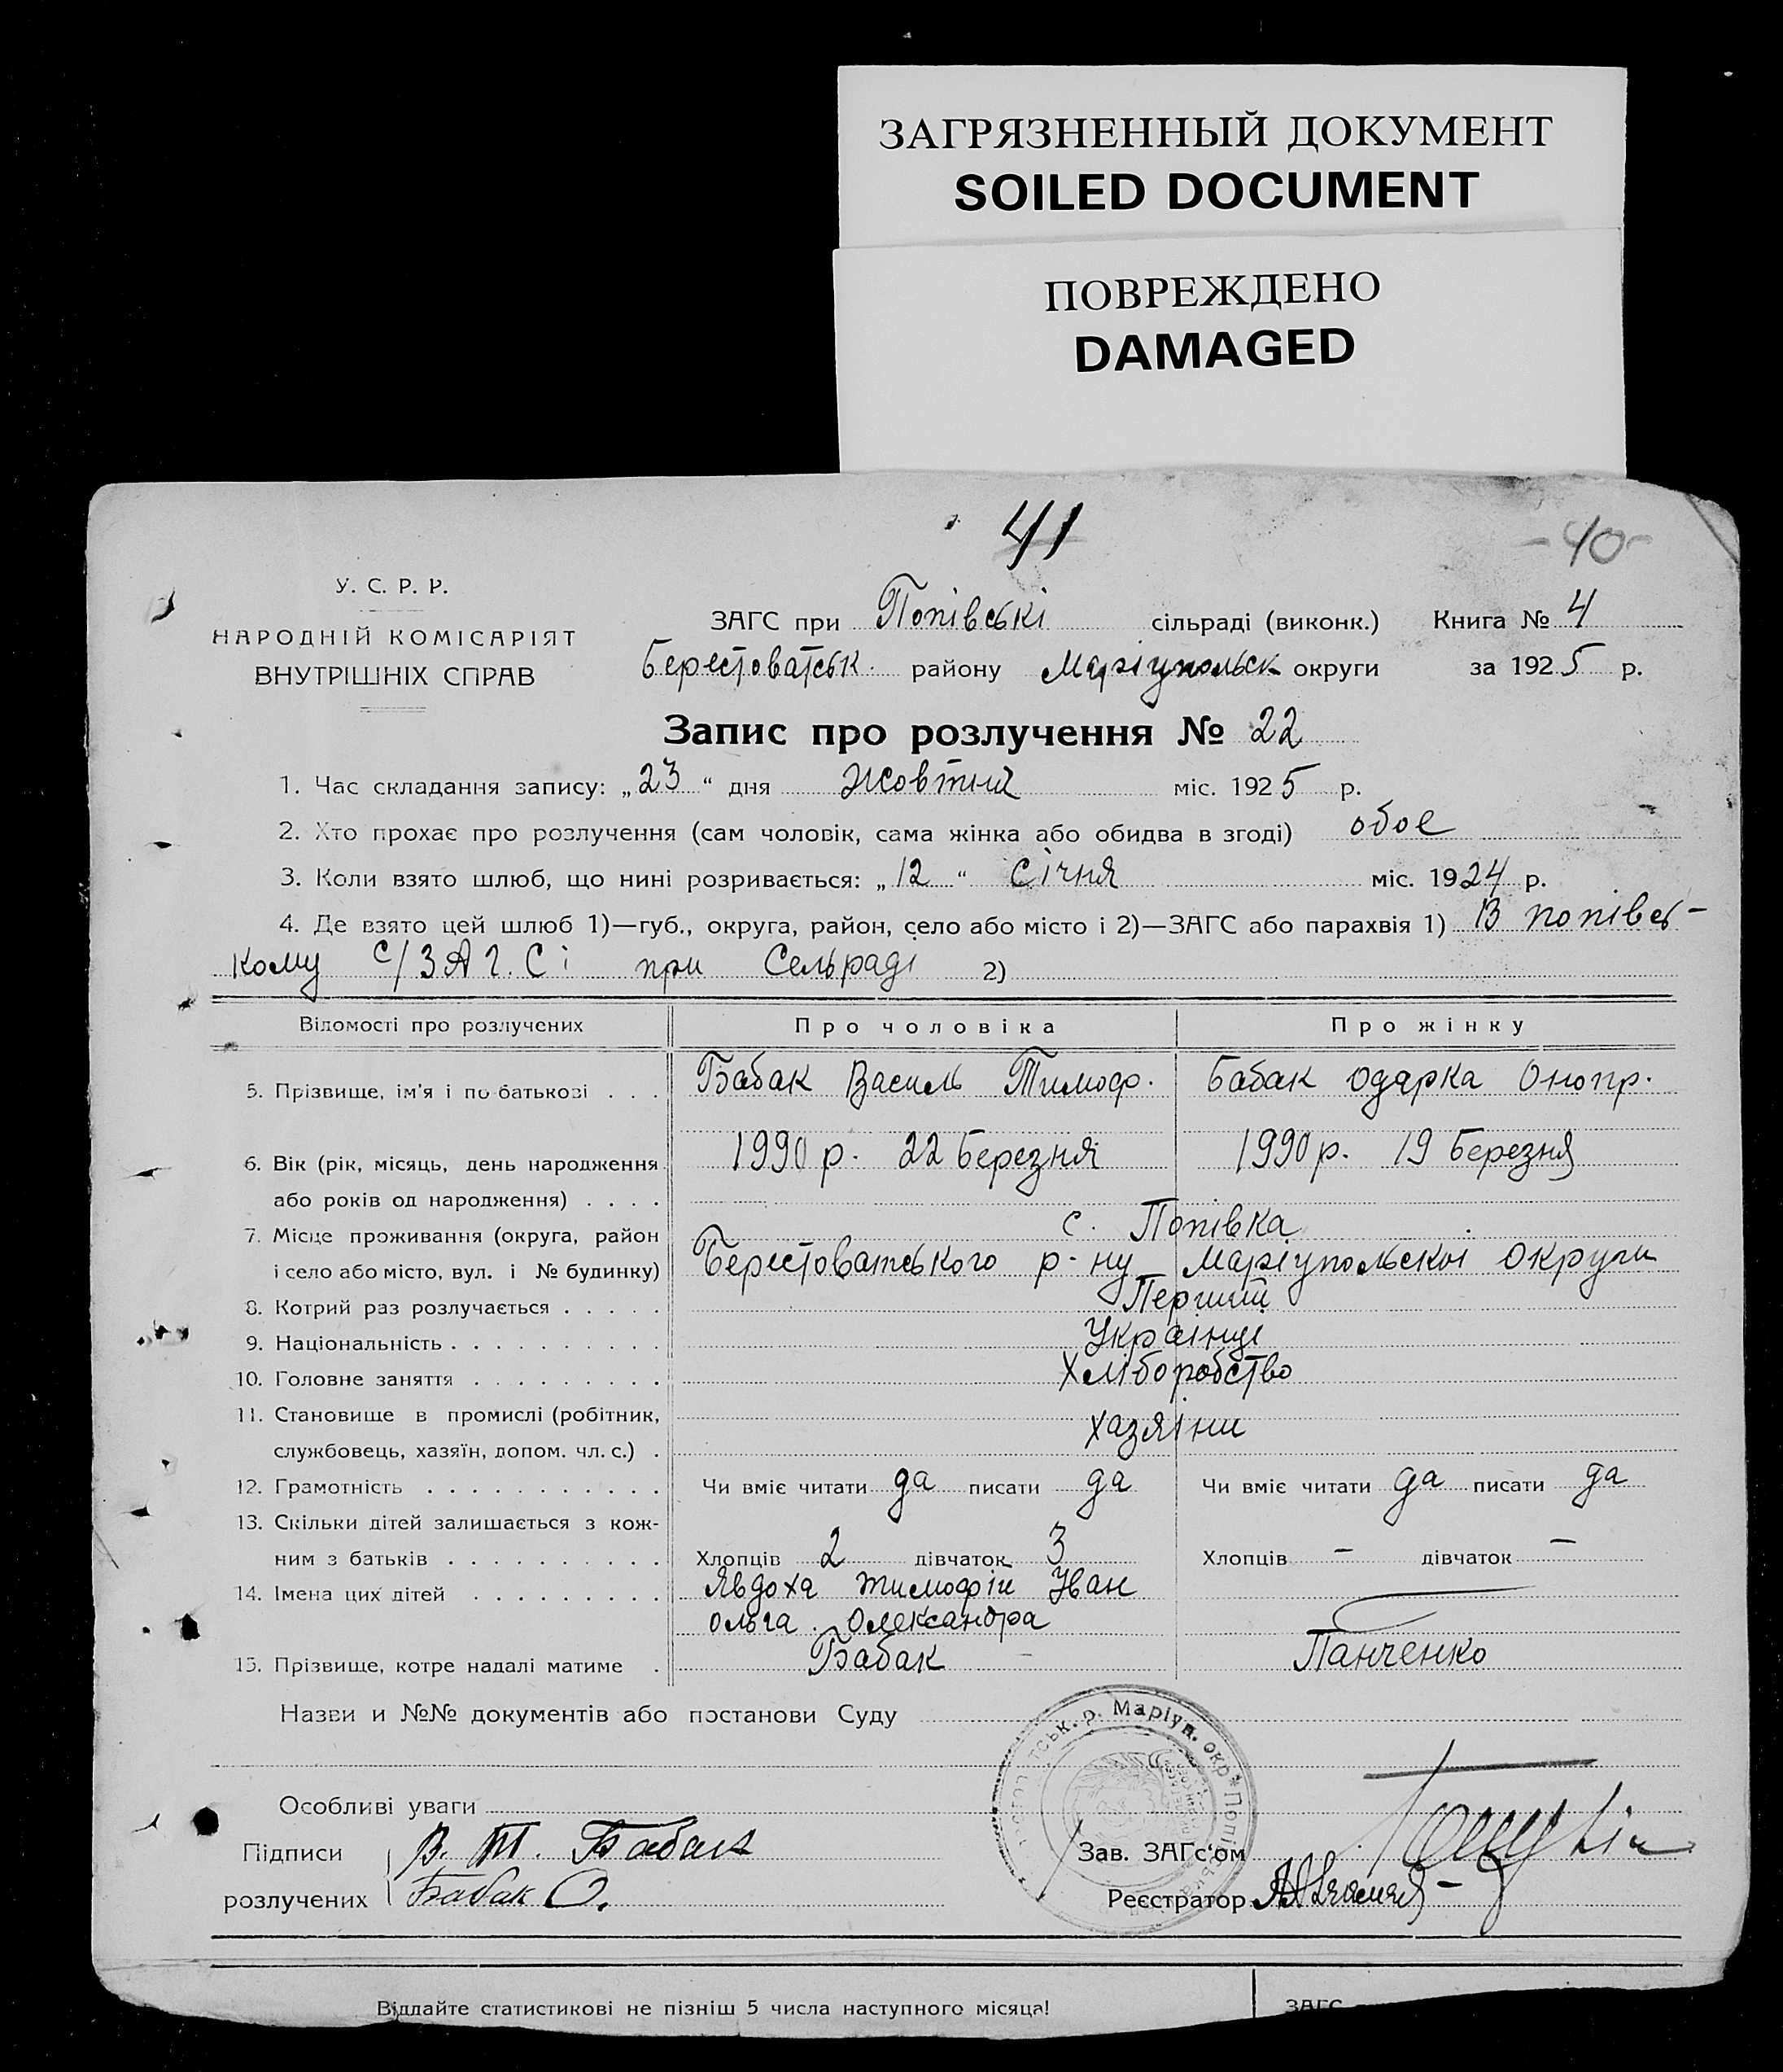 ЗАГРЯЗНЕННЫЙ ДОКУМЕНТ
SOILED DOCUMENT
ПОВРЕЖДЕНО
DAMAGED
41
- 40 -
У. С. Р. Р.
НАРОДНІЙ КОМІСАРІЯТ
ВНУТРІШНІХ СПРАВ
ЗАГС при Попівські сільраді (виконк.) Книга № 4
Берестоватськ. району Маріупольск округи за 1925 р.
Запис про розлучення № 22
1. Час складання запису: „23“ дня жовтня міс. 1925 р.
2. Хто прохає про розлучення (сам чоловік, сама жінка або обидва в згоді) обое
3. Коли взято шлюб, що нині розривається: „12“ Січня міс. 1924 р.
4. Де взято цей шлюб 1)—губ., округа, район, село або місто і 2)—ЗАГС або парахвія 1) В попівсь-
кому с/ЗАГ.Сі при Сельраді 2)
Відомості про розлучених Про чоловіка Про жінку
5. Прізвище, ім'я і по-батькові . . . Бабак Василь Тимоф. Бабак Одарка Онопр.
6. Вік (рік, місяць, день народження 1990 р. 22 Березня 1990 р. 19 Березня
або років од народження) . . . .
7. Місце проживання (округа, район с. Попівка
і село або місто, вул. і № будинку) Берестоватського р-ну Маріупольскоі Округи
8. Котрий раз розлучається . . . . . Перший
9. Національність . . . . . . . . . . Українці
10. Головне заняття . . . . . . . . . Хліборобство
11. Становище в промислі (робітник,
службовець, хазяїн, допом. чл. с.) . хазяіни
12. Грамотність . . . . . . . . . . . Чи вміє читати да писати да Чи вміє читати да писати да
13. Скільки дітей залишається з кож-
ним з батьків . . . . . . . . . . Хлопців 2 дівчаток 3 Хлопців — дівчаток —
14. Імена цих дітей . . . . . . . . . Явдоха Тимофій Іван
Ольга. Олександра
15. Прізвище, котре надалі матиме . Бабак Панченко
Назви и №№ документів або постанови Суду
ськ. р. Маріуп. окр * Попівсь
Особливі уваги
Підписи В. Т. Бабак Зав. ЗАГс'ом
розлучених Бабак О. Реєстратор
Віддайте статистикові не пізніш 5 числа наступного місяця! ЗАГС